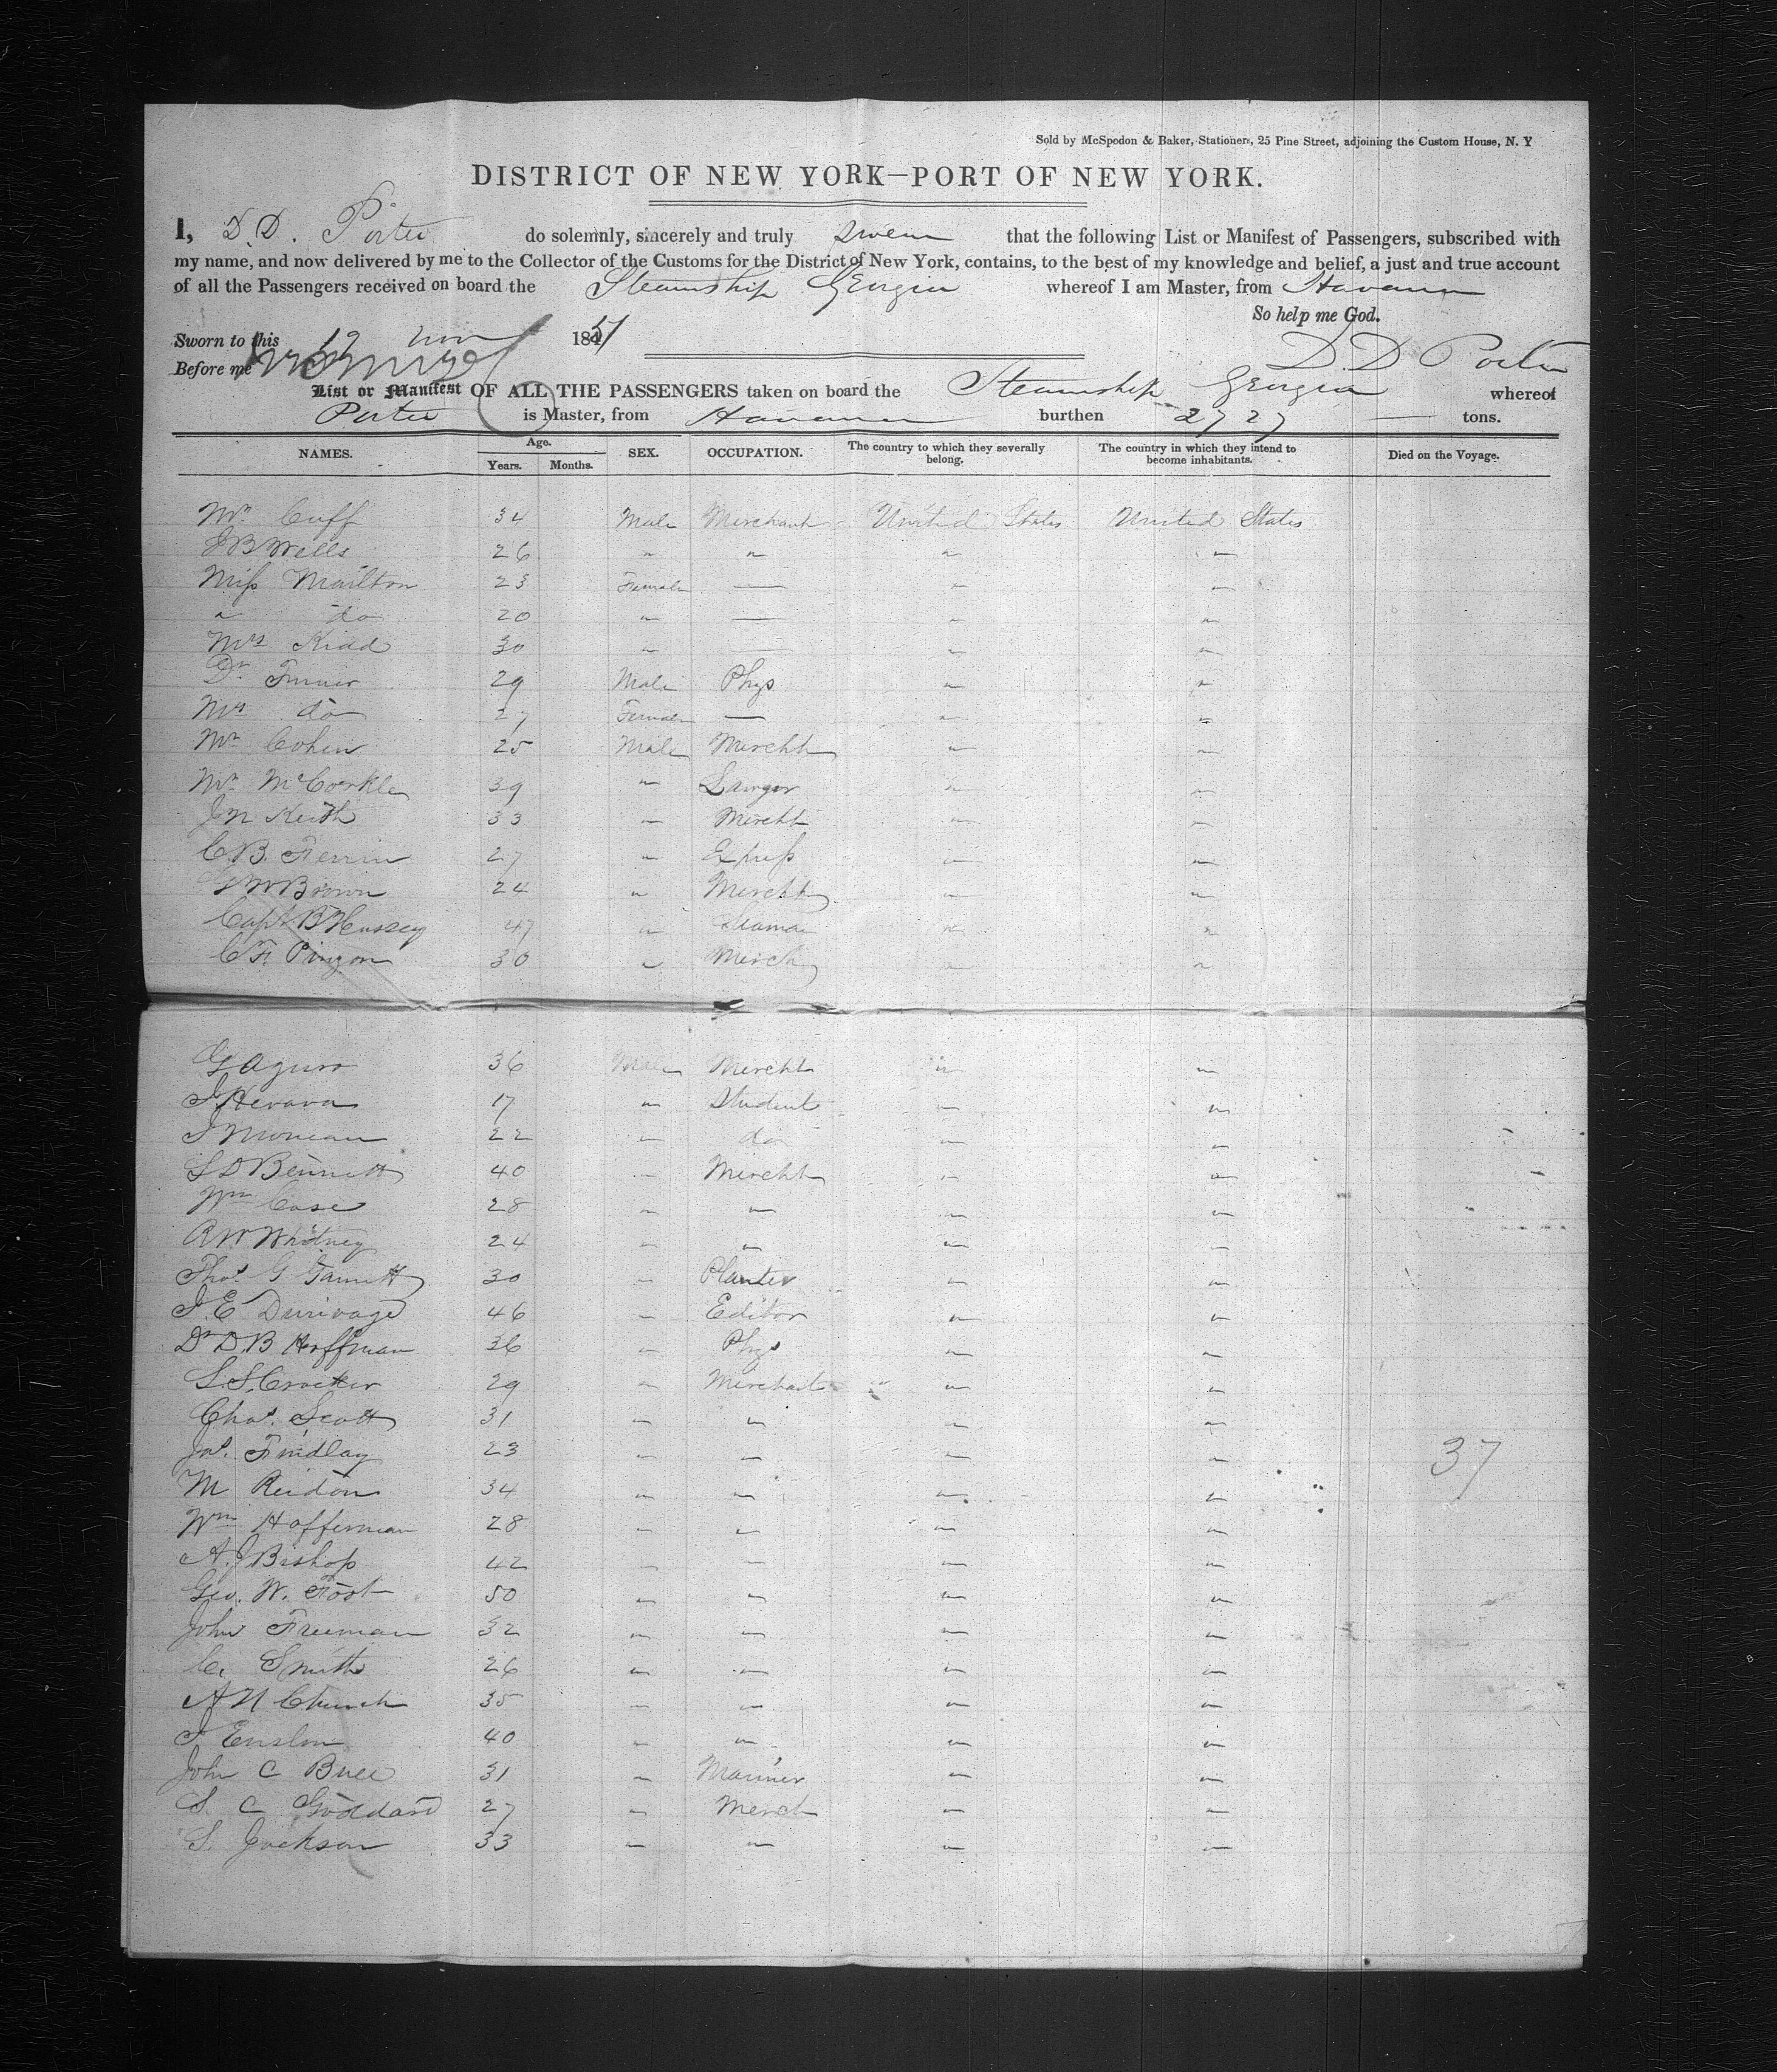 Sold by McSpedon & Baker, Stationers, 25 Pine Street, adjoining the Custom House, N. Y
DISTRICT OF NEW YORK—PORT OF NEW YORK.
I, D. D. Porter do solemnly, sincerely and truly swear that the following List or Manifest of Passengers, subscribed with
my name, and now delivered by me to the Collector of the Customs for the District of New York, contains, to the best of my knowledge and belief, a just and true account
of all the Passengers received on board the Steamship Georgia whereof I am Master, from Havana
So help me God.
Sworn to this 19 Nov 1851
D. D Porter
Before me
List or Manifest OF ALL THE PASSENGERS taken on board the Steamship Georgia whereof
Porter is Master, from Havana burthen 2727 — tons.
NAMES. Age. Years. Months. SEX. OCCUPATION. The country to which they severally belong. The country in which they intend to become inhabitants. Died on the Voyage.
Mr. Cuff 34 Male Merchant United States United States
J B Wells 26 " " " "
Miss Mailton 23 Female — " "
" do 20 " — " "
Mrs Kidd 30 " — " "
Dr. Turner 29 Male Phys " "
Mrs do 27 Female — " "
Mr Cohen 25 Male Mercht " "
Mr McCorkle 39 " Lawyer " "
J N Keith 33 " Mercht " "
C. B. Perrin 27 " Express " "
G W Brown 24 " Mercht " "
Capt B Hussey 47 " Seaman " "
C F. Pinzon 30 " Merch " "
G Aguro 36 Male Mercht " "
17 " Student " "
22 " do " "
S D Bennett 40 " Mercht " "
Wm Case 28 " " " "
R W Whitney 24 " " " "
Thos. G Garnett 30 " Planter " "
J. E Durivage 46 " Editor " "
Dr D. B Hoffman 36 " Phys " "
S. S. Crocker 29 " Merchant " "
Chas. Scott 31 " " " "
Jas. Findlay 23 " " " " 37
M Reidon 34 " " " "
Wm Hafferman 28 " " " "
A. J Bishop 42 " " " "
Geo. W. Frost 50 " " " "
John Freeman 32 " " " "
C. Smith 26 " " " "
A N Church 35 " " " "
J Enslow 40 " " " "
John C Buee 31 " Mariner " "
S. C Goddard 27 " Merch " "
S. Jackson 33 " " " "